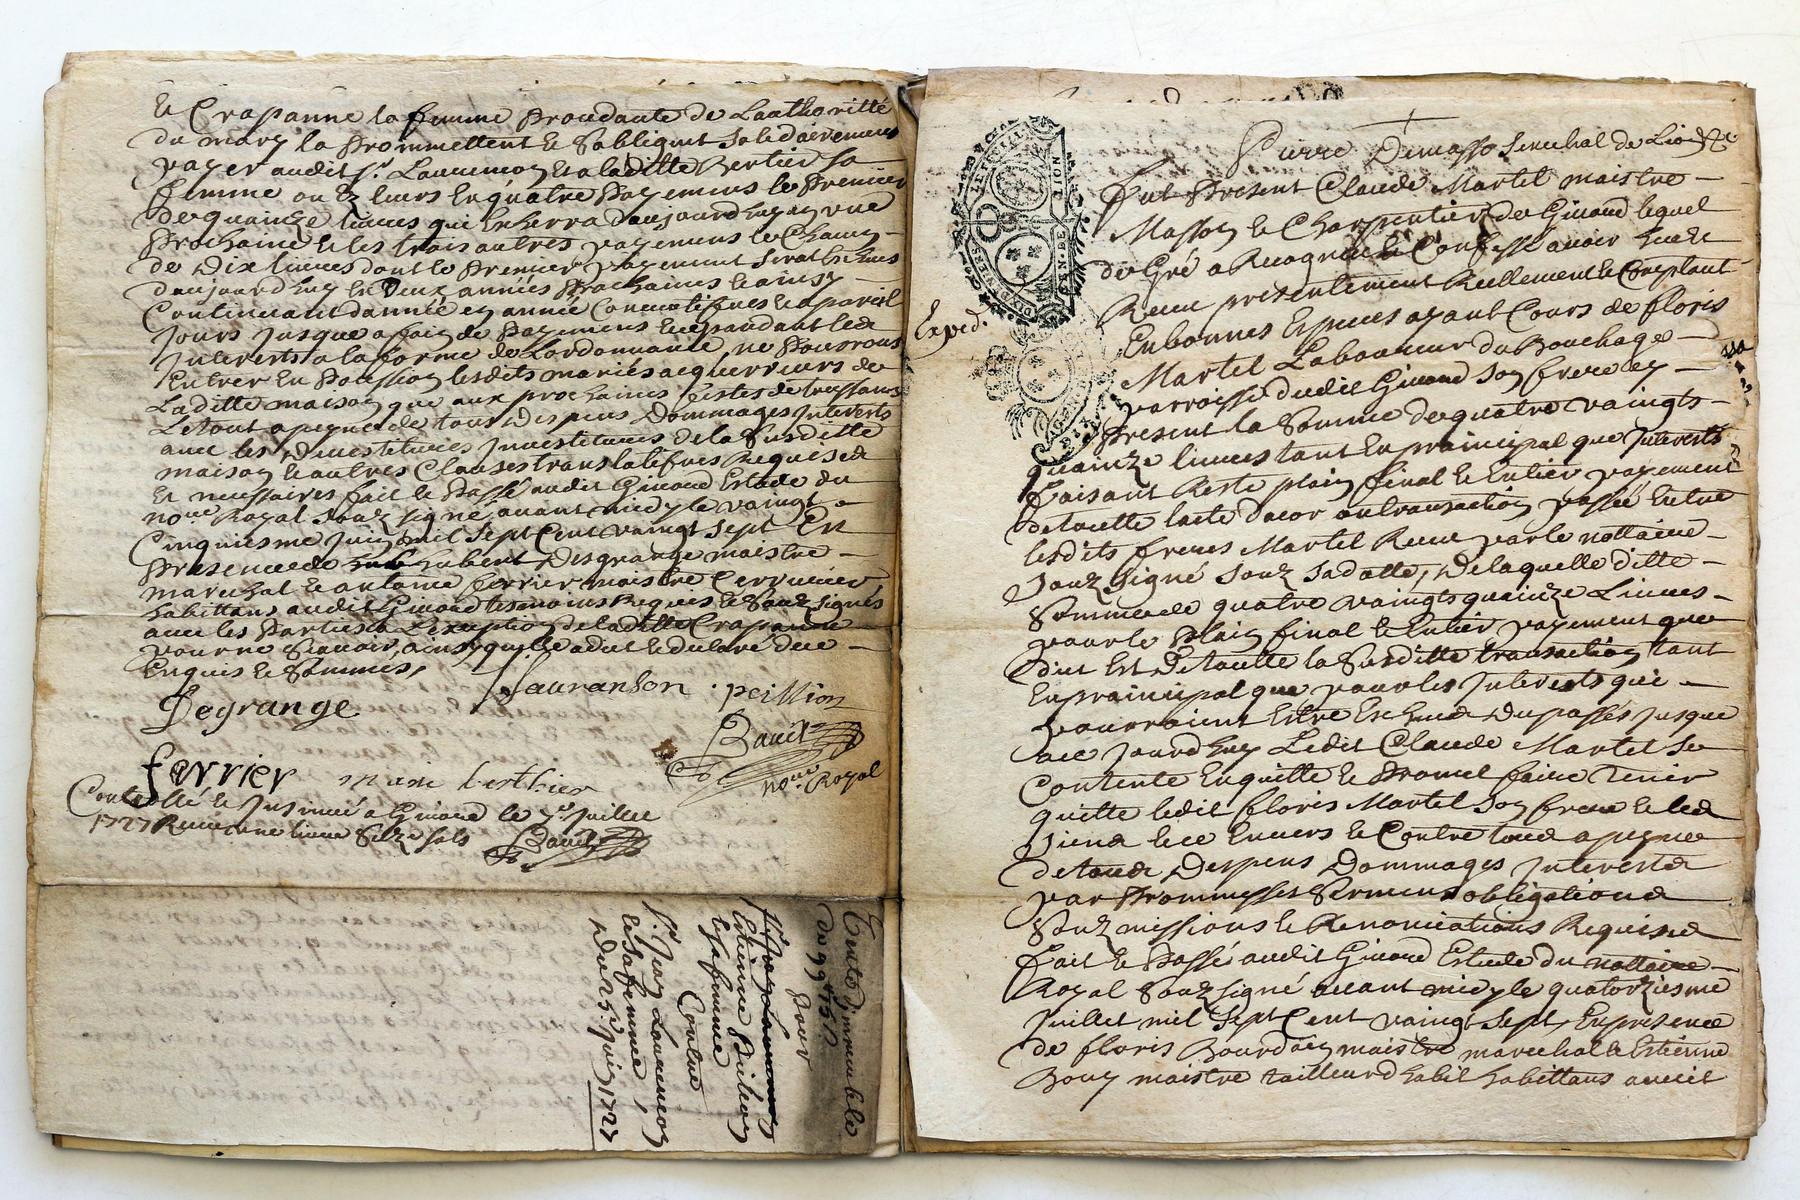 et Crapanne la femme Proudante de Lauthoritté
du mary la Prommettent et Sobligent Solidairement
payer audit Sr. Laurencon et a laditte Bertier sa
femme ou Leurs En quatre Payemens le Premier
de quainze liures qui Escherra daujourdhuy en vne
Prochaine et les trois autres payemens le Chacun
de Dix liures dont le Premier payement Serat Escheus
daujourdhuy en Deux années Prochaines et ainsy
Continuant dannée en année Consecutifues et a pareil
Jours Jusque a fain de Payemens et pandant
Jnterests a la forme de Lordonnance ne Pourront
Entrer En Possession lesdits mariés acquerreurs de
Laditte maison que aux prochaines festes de toussains
Le tout a peyne de tous Despens Dommages Jnterests
auec les Deuestitures Jnvestitures de la Susditte
maison et autres Clauses translatifues Requises
Et necessaires fait et Passé audit Giuord Estude du
nore Royal Souz signé auant midy le vaingt
Cinquiesme Juin mil Sept Cent vaingt Sept En
Presence de hubert Desgrange maistre
marechal et antoine ferrier maistre Serrurier
habittans audit Giuord tesmoins Requis et Souz signés
auec les Parties a Lexeption de laditte Crapanne
pour ne Scauoir, ainsy quelle a dit et declaré de ce
Enquis et Sommés,
Jlauranson peillion
Degrange
Bauet
nore Royal
ferrier marie berthier
Controllé et Jnsinué a Giuord le 7e Juillet
1727 Receu une liure Seize sols Bauet
Du 25e Juin 1727
et Sa femme,
Sr. Jean Laurencon
Contre
et sa femme
Estienne Peilion
Pour
Vente Dimmeuble
Exped.
GEN. DE LION
Pierre Dumasso Senechal de Lion
Fut Present Claude Martel maistre
Masson et Charpentier de Giuord lequel
de Gré a Recognu et Confessé auoir heu et
Receu presentement Reellement et Comptant
En bonnes Especes ayant Cours de floris
Martel Laboureur du Bouchage
parroisse dudit Giuord Son frere cy
Present la Somme de quatre vaingts
quainze liures tant En prainsipal que Jnterests
faisant Reste plain final et Entier payement
de toutte lacte dacor ou transaction passée Entre
lesdits freres Martel Receu par le nottaire
Souz signé Souz Sa datte, De laquelle ditte
Somme de quatre vaingts quainze Liures
pour le Plain final et Entier payement que
dict Est De toutte la Susditte transaction tant
En prainsipal que pour les Jnterests qui
pourraient Estre Escheus Du passés Jusque
a ce Jourdhuy Ledit Claude Martel Se
Contente En quitte et Promet faire Tenir
quitte ledit floris Martel Son frere et les
Siens et ce Enuers et Contre tous a peyne
de tous Despens Dommages Jnterests
par Prommesses Sermens obligations
Souz missions et Renonciations Requises
fait et Passé audit Giuord Estude du nottaire
Royal Souz signé auant midy le quatorziesme
Juillet mil Sept Cent vaingt Sept, En presence
de floris Bourdain maistre marechal et Estienne
Bouy maistre tailleur d habit habittans audit